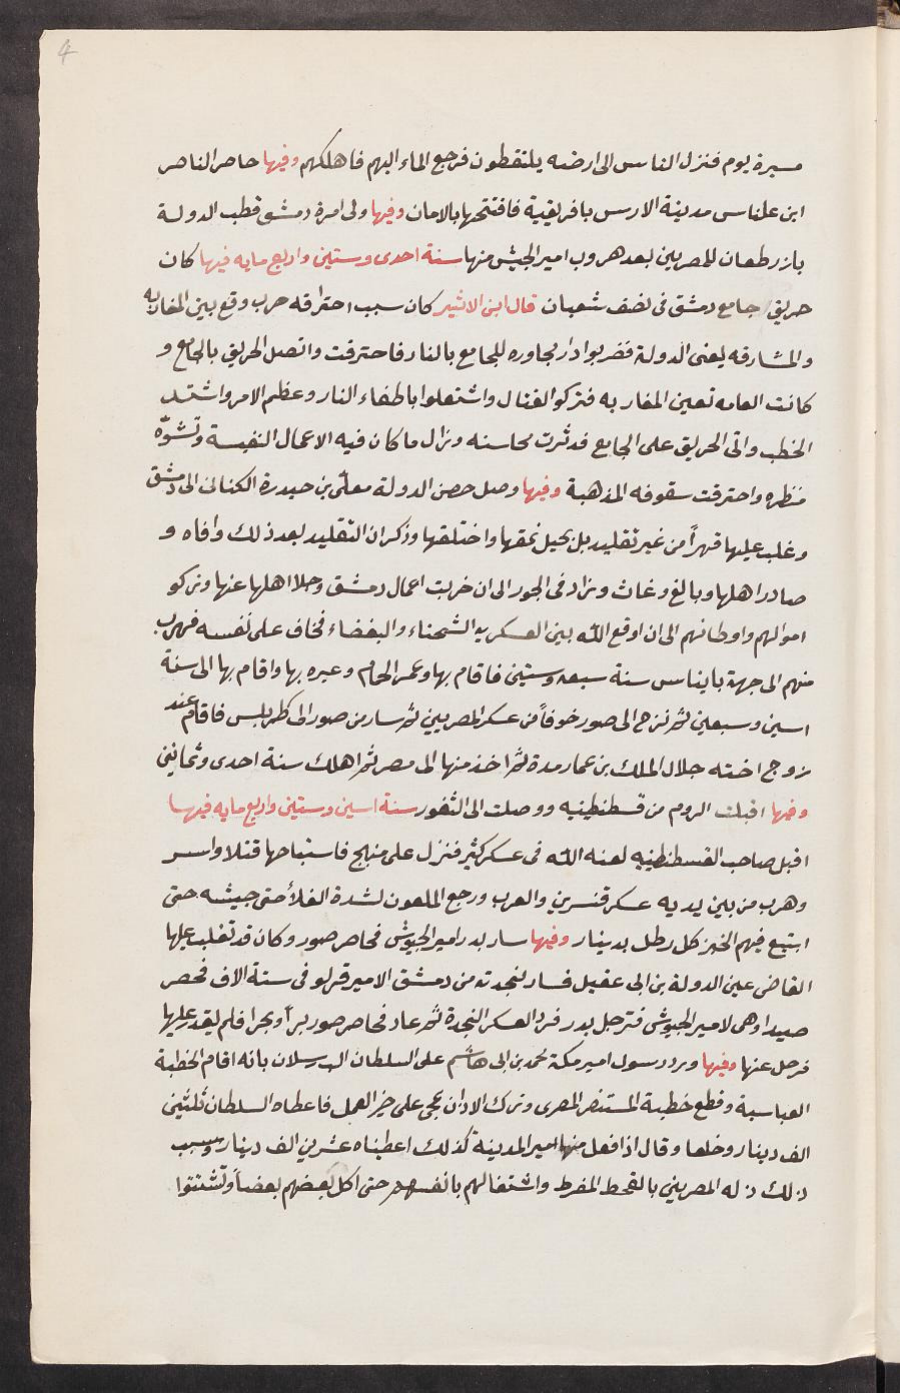 4
مسيرة يوم فنزل الناس الى ارضه يلتقطون فرجع الماء اليهم فاهلكهم وفيها حاصر الناصر
ابن علناس مدينة الارس بافريقية فافتتحها بالامان وفيها ولى امرة دمشق قطب الدولة
بازرطعان للمصريين بعد هروب امير الجيش منها سنة احدى وستين واربع مايه فيها كان
حريق جامع دمشق فى نصف شعبان قال ابن الاثير كان سبب احتراقه حرب وقع بين المغاربه
والمشارقه يعنى الدولة فضربوا دار مجاوره للجامع بالنار فاحترقت واتصل الحريق بالجامع و
كانت العامه تعين المغاربه فتركوا القتال واشتغلوا باطفاء النار وعظم الامر واشتد
الخطب واتى الحريق على الجامع فدثرت محاسنه وزال ما كان فيه الاعمال النفيسة وتشوّه
منظره واحترقت سقوفه المذهبة وفيها وصل حصن الدولة معلّى بن حيدرة الكنانى الى دمشق
وغلب عليها قهراً من غير تقليد بل بحيل نمقها واختلقها وذكر ان التقليد بعد ذلك وافاه و
صادر اهلها وبالغ وعاث وزاد فى الجور الى ان خربت اعمال دمشق وجلا اهلها عنها وتركو
اموالهم واوطانهم الى ان اوقع الله بين العسكريه الشحناء والبغضاء فخاف على نفسه فهرب
منهم الى جهة بانياس سنة سبعه وستين فاقام بها وعمر الحمام وغيره بها واقام بها الى سنة
اسين وسبعين ثم نزح الى صور خوفاً من عسكر المصريين ثم سار من صور الى طرابلس فاقام عند
زوج اخته جلال الملك بن عمار مدة ثم اخذ منها الى مصر ثم اهلك سنة احدى وثمانين
وفيها اقبلت الروم من قسطنطينيه ووصلت الى الثغور سنة اسين وستين واربع مايه فيها
اقبل صاحب القسطنطينيه لعنه الله فى عسكر كثير فنزل على منبج فاستباحها قتلا واسر
وهرب من بين يديه عسكر قنسرين والعرب ورجع الملعون لشدة الغلاء حتى جيشه حتى
ابتيع فيهم الخبز كل رطل بدينار وفيها سار بدر امير الجيوش فحاصر صور وكان قد تغلب عليها
القاضى عين الدولة بن ابى عقيل فسار لنجدته من دمشق الامير قرلو فى ستة الاف فحصر
صيدا وهى لامير الجيوش فترحل بدر فرد العسكر النجدة ثم عاد فحاصر صور براً وبحرا فلم يقدر عليها
فرحل عنها وفيها ورد رسول امير مكة محمد بن ابى هاشم على السلطان الب رسلان بانه اقام الخطبة
العباسية وقطع خطبة المستنصر المصرى وترك الاذان بحى على خير العمل فاعطاه السلطان ثلثين
الف دينار وخلعا وقال اذا فعل منها امير المدينة كذلك اعطيناه عشرين الف دينار وسبب
ذلك ذله المصريين بالقحط المفرط واشتغالهم بانفسهم حتى اكل بعضهم بعضاً وتشتتوا